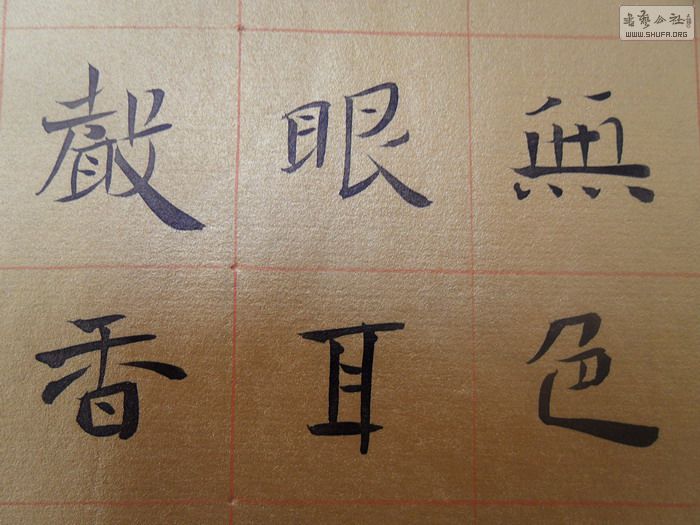 無色
眼耳
聲香
書藝公社
WWW.SHUFA.ORG